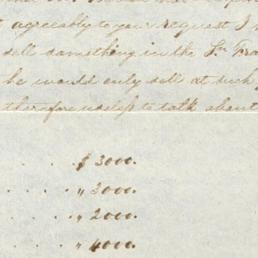 t agreably to your request I
sell something in the Sn Fra
he would only sell at such
therefore useless to talk about
. . . . $ 3000.
. . . . " 3000.
. . . . " 2000.
. . . . " 4000.